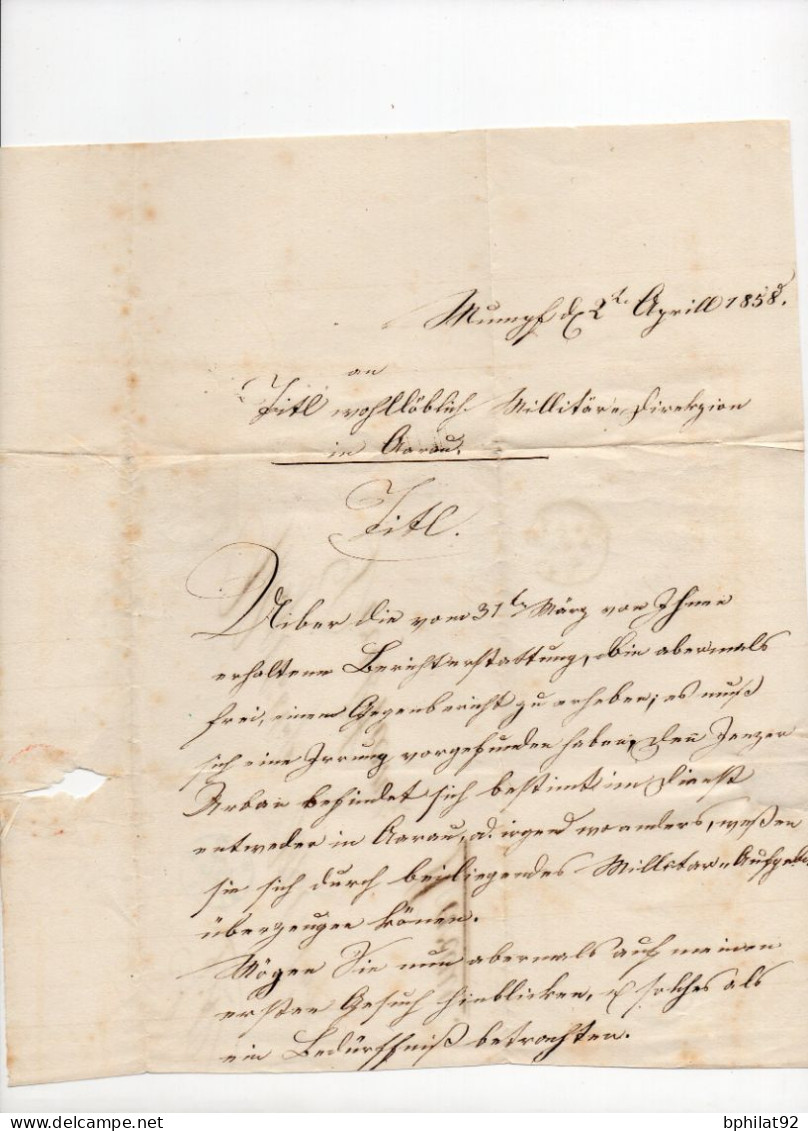 Mumpf d. 2t. Aprill 1858.
an
Titl wohllöblich Millitär-Direkzion
in Aarau.
Titl.
Uiber die vom 31ten März von Ihnen
erhaltene Berichterstattung, bin abermals
frei, einen Gegenbericht zu erheben; es muß
sich eine Irrung vorgefunden haben, den Jenzer
Urban befindet sich bestimt im Dienst
entweder in Aarau, od. irgend wo anders, weßen
sie sich durch beiliegendes Millitär-Aufgebot
überzeugen könen.
Mögen Sie nun abermals auf meinen
ersten Gesuch hinblicken, & solches als
ein Bedürffniß betrachten.
bphilat92